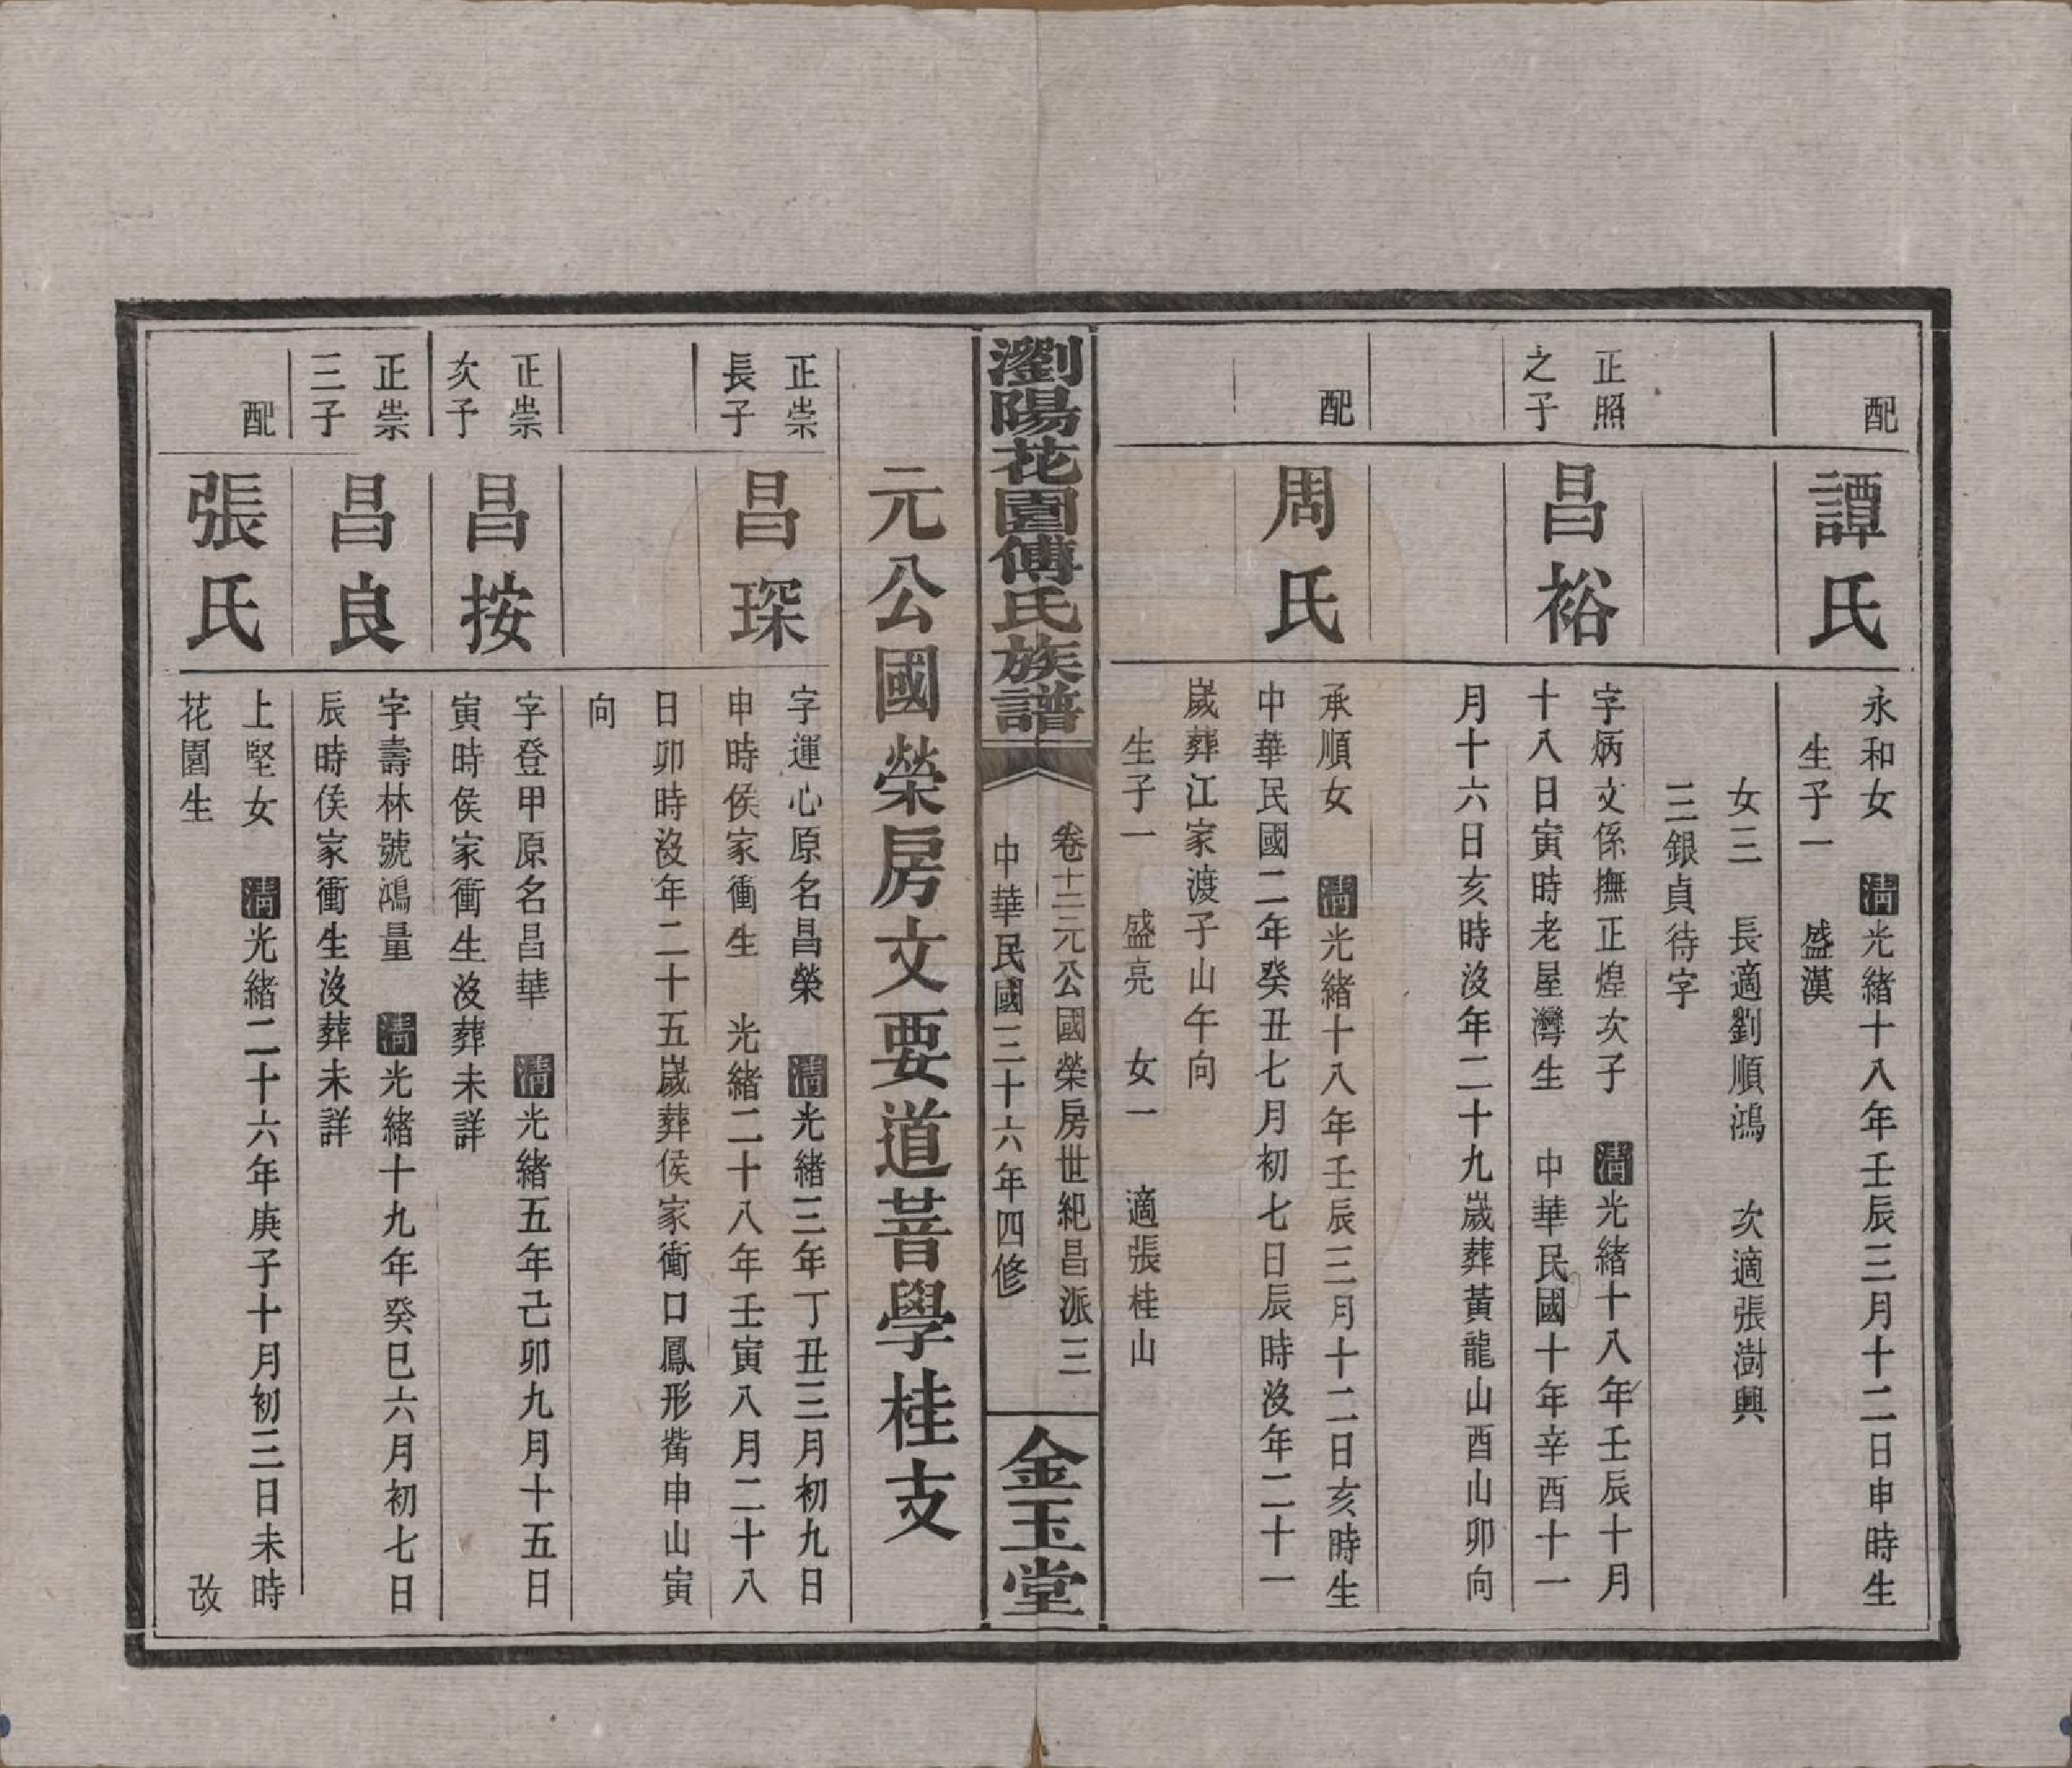 配
譚氏
永和女　清光緒十八年壬辰三月十二日申時生
生子一　盛漢
女三　長適劉順鴻　次適張澍興
三銀貞待字
正照
之子
昌裕
字炳文係撫正煌次子　清光緒十八年壬辰十月
十八日寅時老屋灣生　中華民國十年辛酉十一
月十六日亥時沒年二十九歲葬黃龍山酉山卯向
配
周氏
承順女　清光緒十八年壬辰三月十二日亥時生
中華民國二年癸丑七月初七日辰時沒年二十一
歲葬江家渡子山午向
生子一　盛亮　女一　適張桂山
瀏陽花園傅氏族譜
卷十三元公國榮房世紀昌派三
中華民國三十六年四修
金玉堂
元公國榮房文要道善學桂支
正崇
長子
昌琛
字運心原名昌榮　清光緒三年丁丑三月初九日
申時侯家衝生　光緒二十八年壬寅八月二十八
日卯時沒年二十五歲葬侯家衝口鳳形觜申山寅
向
正崇
次子
昌按
字登甲原名昌華　清光緒五年己卯九月十五日
寅時侯家衝生沒葬未詳
正崇
三子
昌良
字壽林號鴻量　清光緒十九年癸巳六月初七日
辰時侯家衝生沒葬未詳
配
張氏
上堅女　清光緒二十六年庚子十月初三日未時
花園生　改